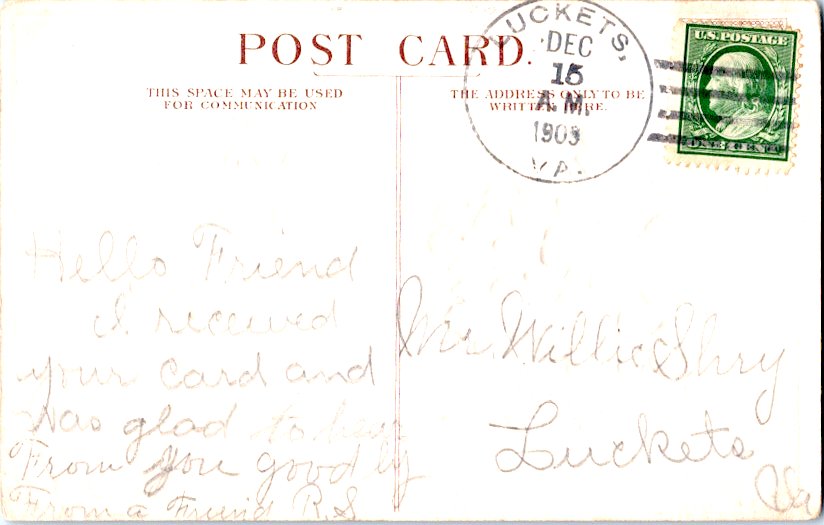 POST CARD.
THIS SPACE MAY BE USED
FOR COMMUNICATION
THE ADDRESS ONLY TO BE
WRITTEN HERE.
LUCKETS,
DEC
15
A.M.
1909
VA.
U.S. POSTAGE
ONE CENT
Hello Friend
I received
your card and
was glad to hear
From you good by
From a Friend R.S
Mr. Willie Shry
Luckets
Va